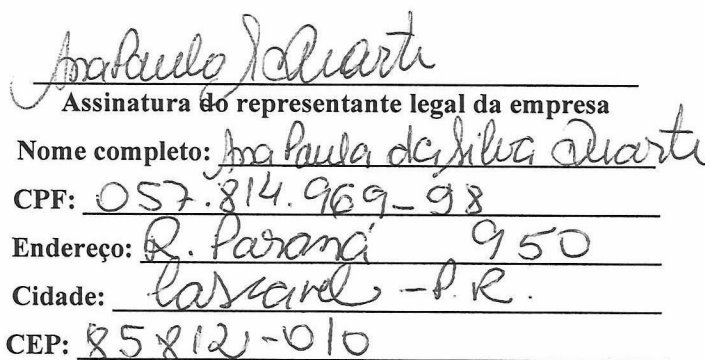 Ana Paula S Duarte
Assinatura do representante legal da empresa
Nome completo: Ana Paula da Silva Duarte
CPF: 057.814.969-98
Endereço: R. Paraná 950
Cidade: Cascavel - P.R.
CEP: 85812-010